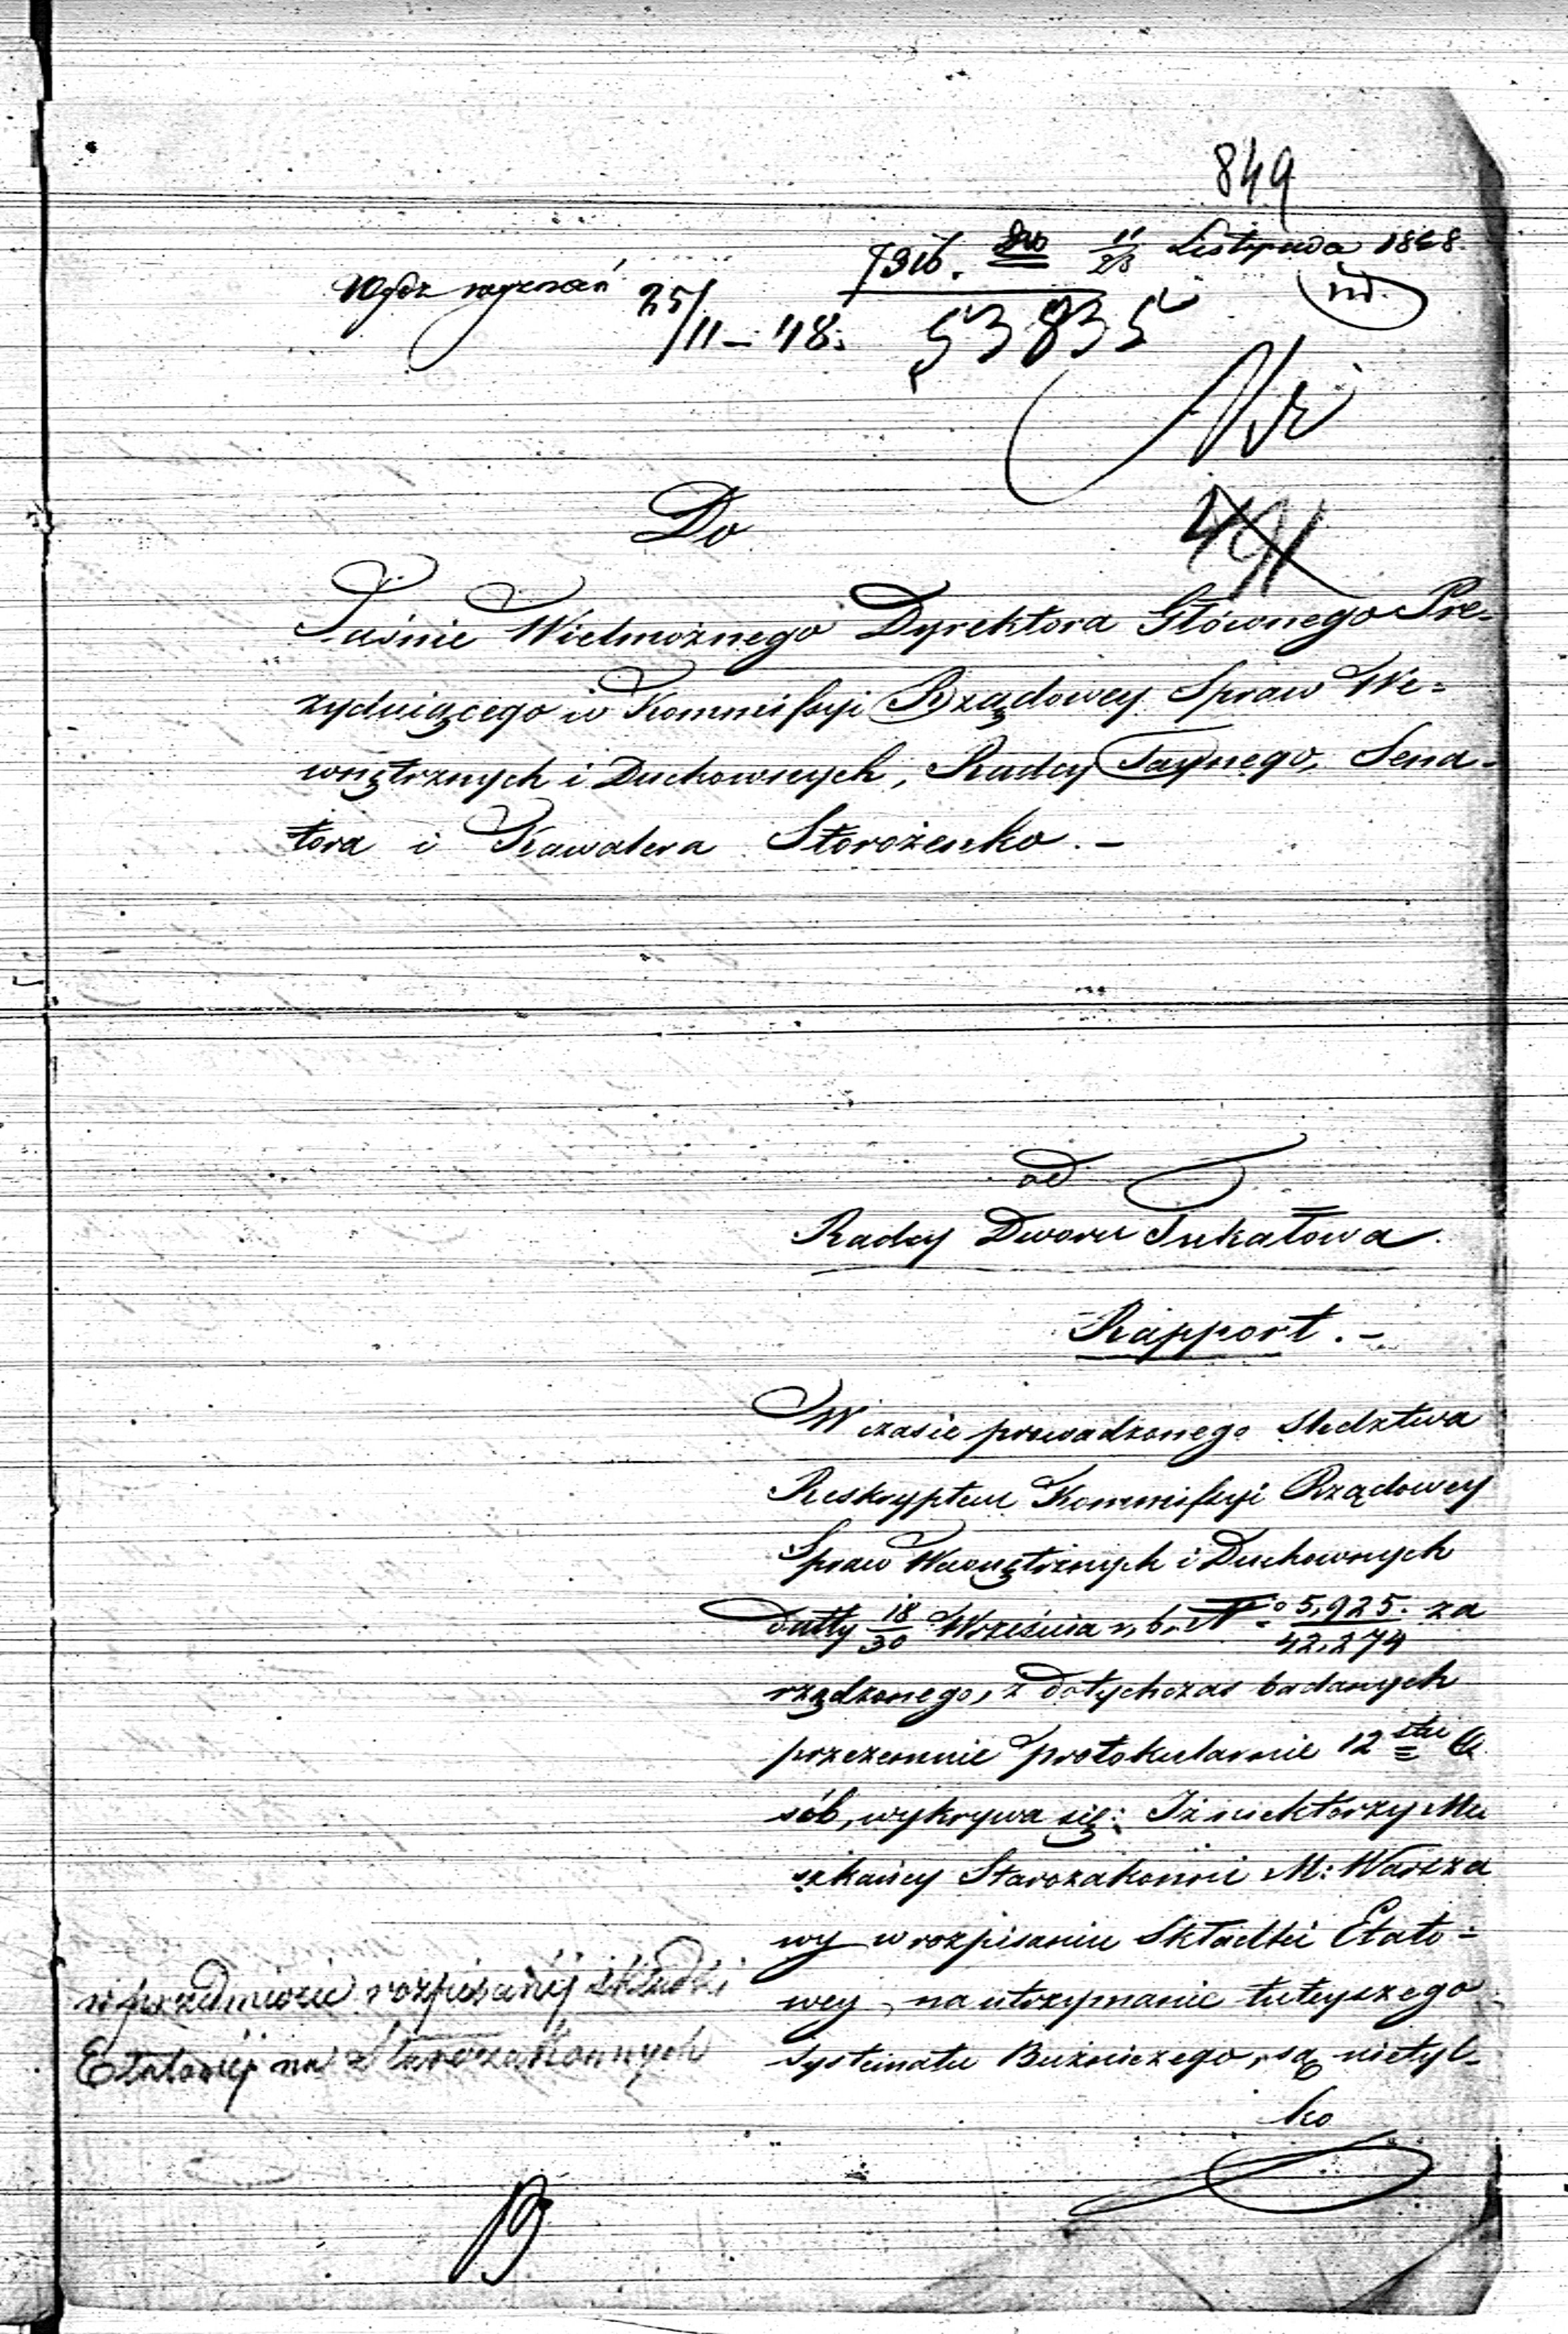 849
11/23 Listopada 1848.
Wydz wyznań 25/11–48. 53835
Do
491
Jaśnie Wielmożnego Dyrektora Głównego Pre-
zyduiącego w Kommissyi Rządowey Spraw We-
wnętrznych i Duchownych, Radcy Taynego, Sena-
tora i Kawalera Storożenko.–
od
Radcy Dworu Tukałowa.
Rapport.–
W czasie prowadzonego śledztwa
Reskryptem Kommissyi Rządowey
Spraw Wewnętrznych i Duchownych
datty 18/30 Września r, b, N° 5,925./42.274 za
rządzonego, z dotychczas badanych
przezemnie protokularnie 12stu O
sób, wykrywa się: Iż niektorzy Mie
szkańcy Starozakonni M: Warsza
wy w rozpisaniu Składki Etato-
wey, na utrzymanie tuteyszego
Systematu Bużniczego, są nietyl-
ko
w przedmiocie rozpisanéj składki
Etatowéj na Starozakonnych